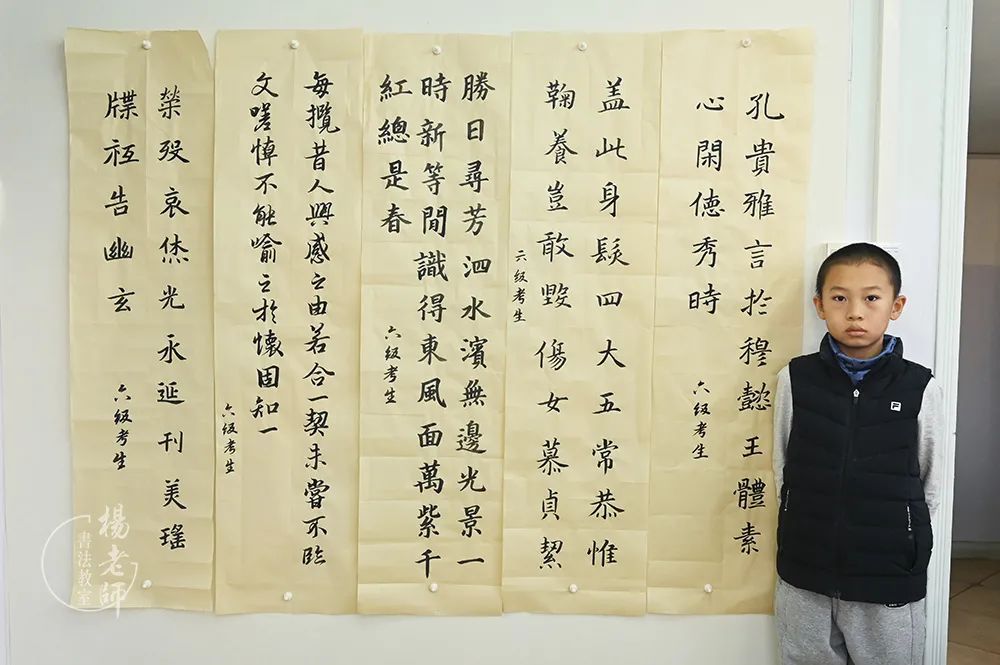 孔貴雅言扵穆懿王體素
心閑徳秀時
六级考生
盖此身髮四大五常恭惟
鞠養豈敢毀傷女慕貞絜
六级考生
勝日尋芳泗水濱無邊光景一
時新等間識得東風面萬紫千
紅總是春
六级考生
每攬昔人興感之由若合一契未嘗不臨
文嗟悼不能喻之於懷固知一
六级考生
榮歿哀烋光永延刊美瑶
牒祗告幽玄
六级考生
楊老師
書法教室